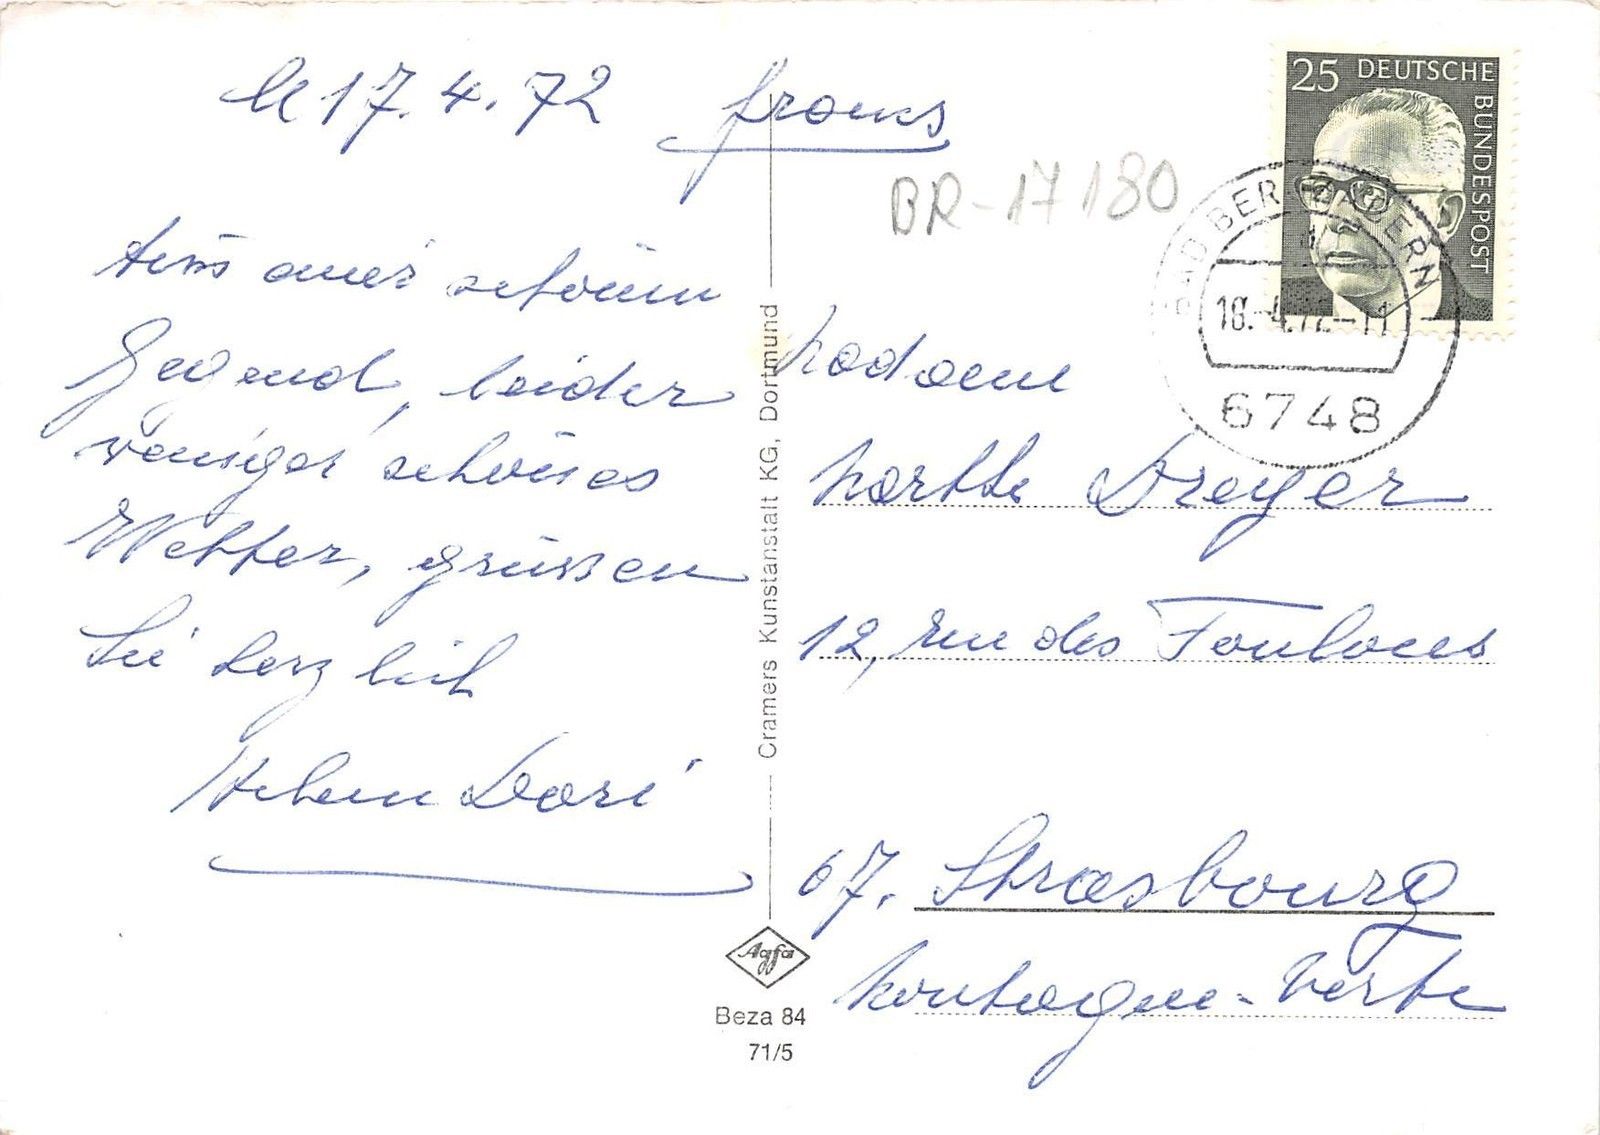 le 17.4.72
25 DEUTSCHE BUNDESPOST
BR-17180
Aus einer schönen
Gegend, leider
weniger schönes
Wetter, grüssen
Sie herzlich
BAD BERGZABERN
18.-4.72-11
6748
Madame
Marthe Dreyer
12, rue des
67. Strasbourg
Montagne-Verte
Cramers Kunstanstalt KG, Dortmund
Agfa
Beza 84
71/5